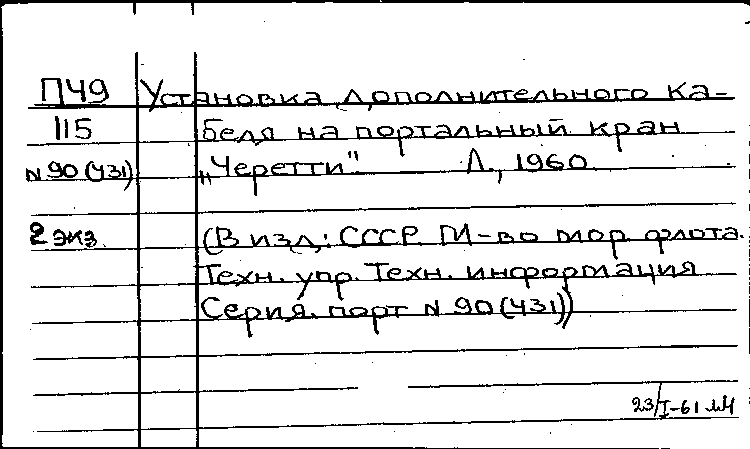 П49 Установка дополнительного ка-
115 беля на портальный кран
N 90 (431) „Черетти". Л., 1960
2 экз. (В изд.: СССР. М-во мор. флота.
Техн. упр. Техн. информация
Серия. порт N 90 (431))
23/I-61